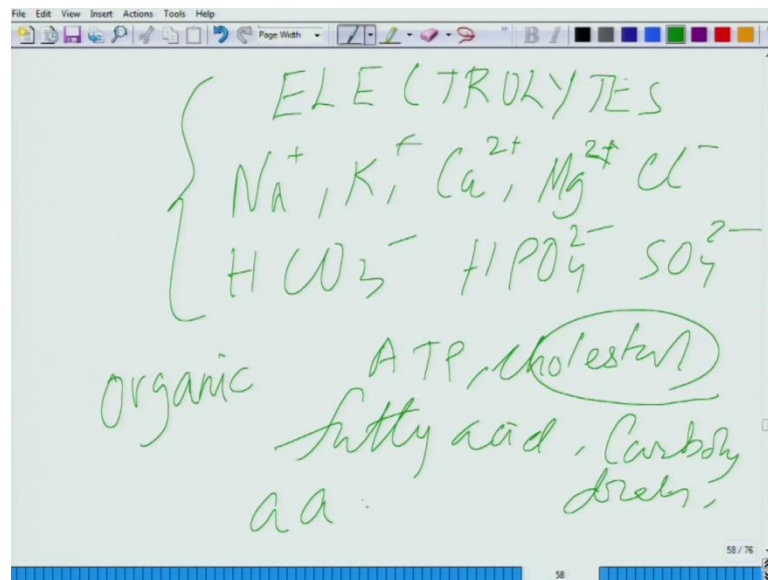 File Edit View Insert Actions Tools Help
Page Width
B I
ELECTROLYTES
Na⁺, K⁺, Ca²⁺, Mg²⁺ Cl⁻
HCO₃⁻ HPO₄²⁻ SO₄²⁻
organic ATP, cholesterol
fatty acid, Carbohy
aa. drates,
58 / 76
58